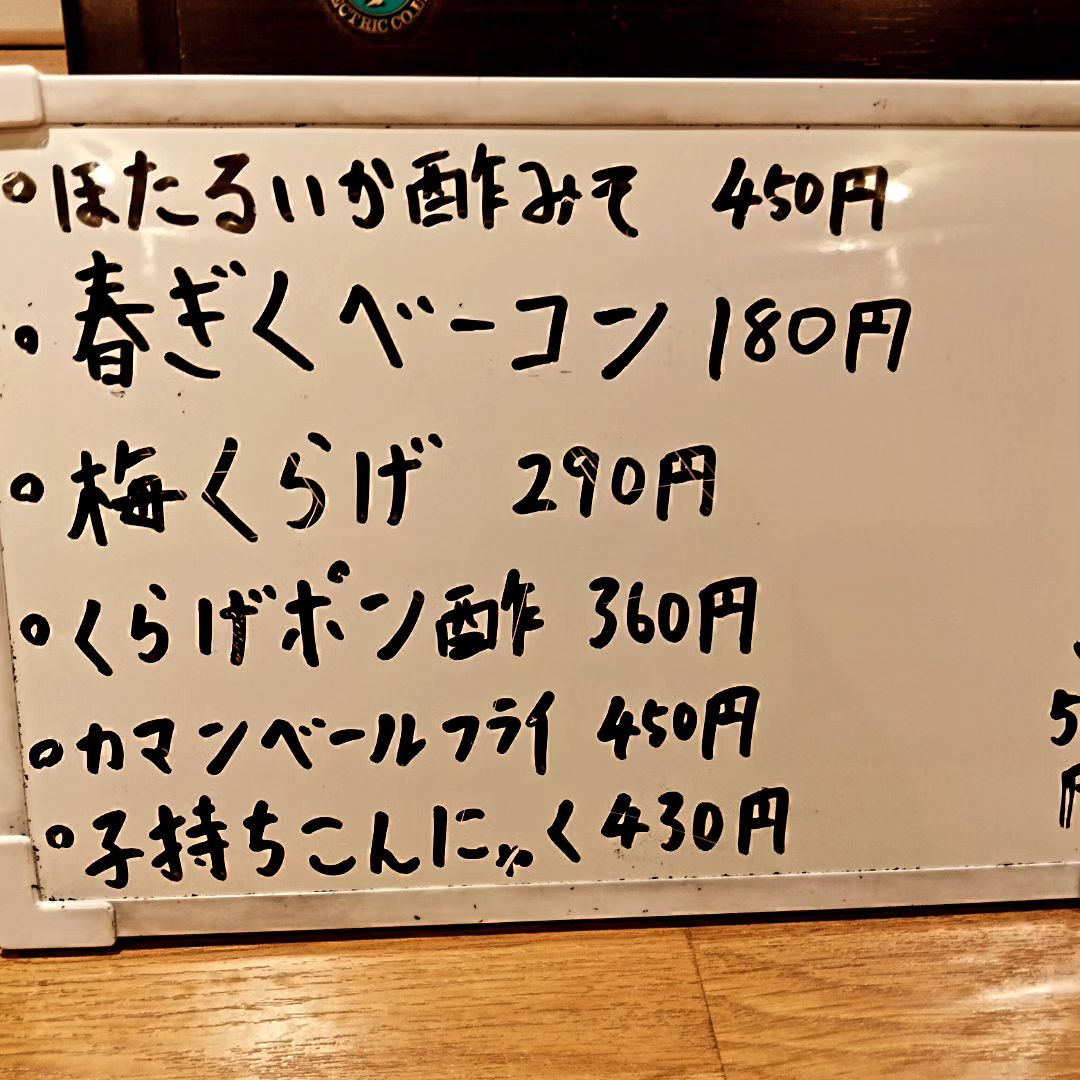 ECTRIC CO.
。ほたるいか酢みそ 450円
。春ぎくベーコン 180円
。梅くらげ 290円
。くらげポン酢 360円
。カマンベールフライ 450円
。子持ちこんにゃく 430円
5
円